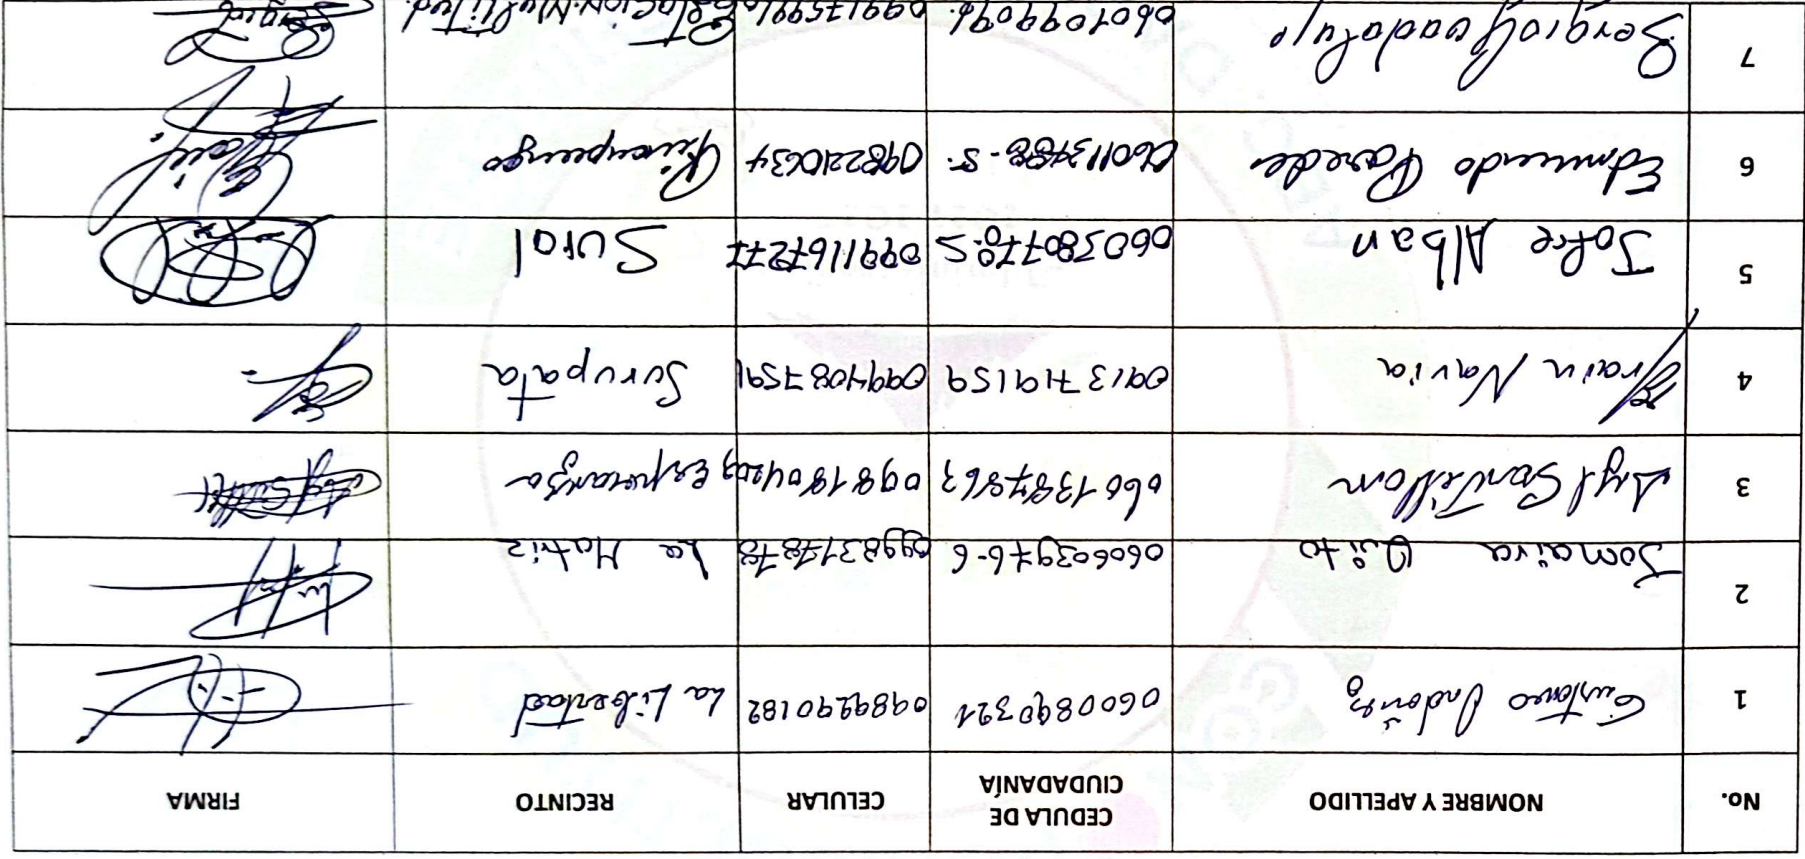 No. NOMBRE Y APELLIDO CEDULA DE CIUDADANÍA CELULAR RECINTO FIRMA
1 Gustavo Ordóñez 0600890321 0989290182 La Libertad
2 Jomaira Quito 06603976-6 0998317878 La Matriz
3 Angel Santillan 0601387863 Esperanza
4 Efrain Navia 0913719159 0994087591 Surupata
5 Jofre Alban 060380770-5 0991167277 Sural
6 Edmundo Paredes 060113488-5. 098220634
7 Sergio Guadalupe 060109909 Estacion. Multitud